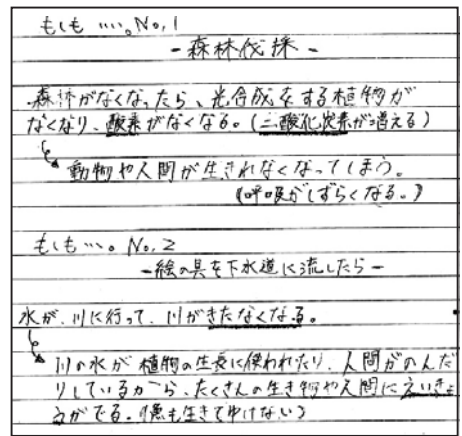 もしも…。No.1
-森林伐採-
森林がなくなったら、光合成をする植物が
なくなり、酸素がなくなる。(二酸化炭素が増える)
動物や人間が生きれなくなってしまう。
(呼吸がしずらくなる。)
もしも…。No.2
-絵の具を下水道に流したら-
水が、川に行って、川がきたなくなる。
川の水が植物の生長に使われたり、人間がのんだ
りしているから、たくさんの生き物や人間にえいきょ
うがでる。(魚も生きてゆけない)